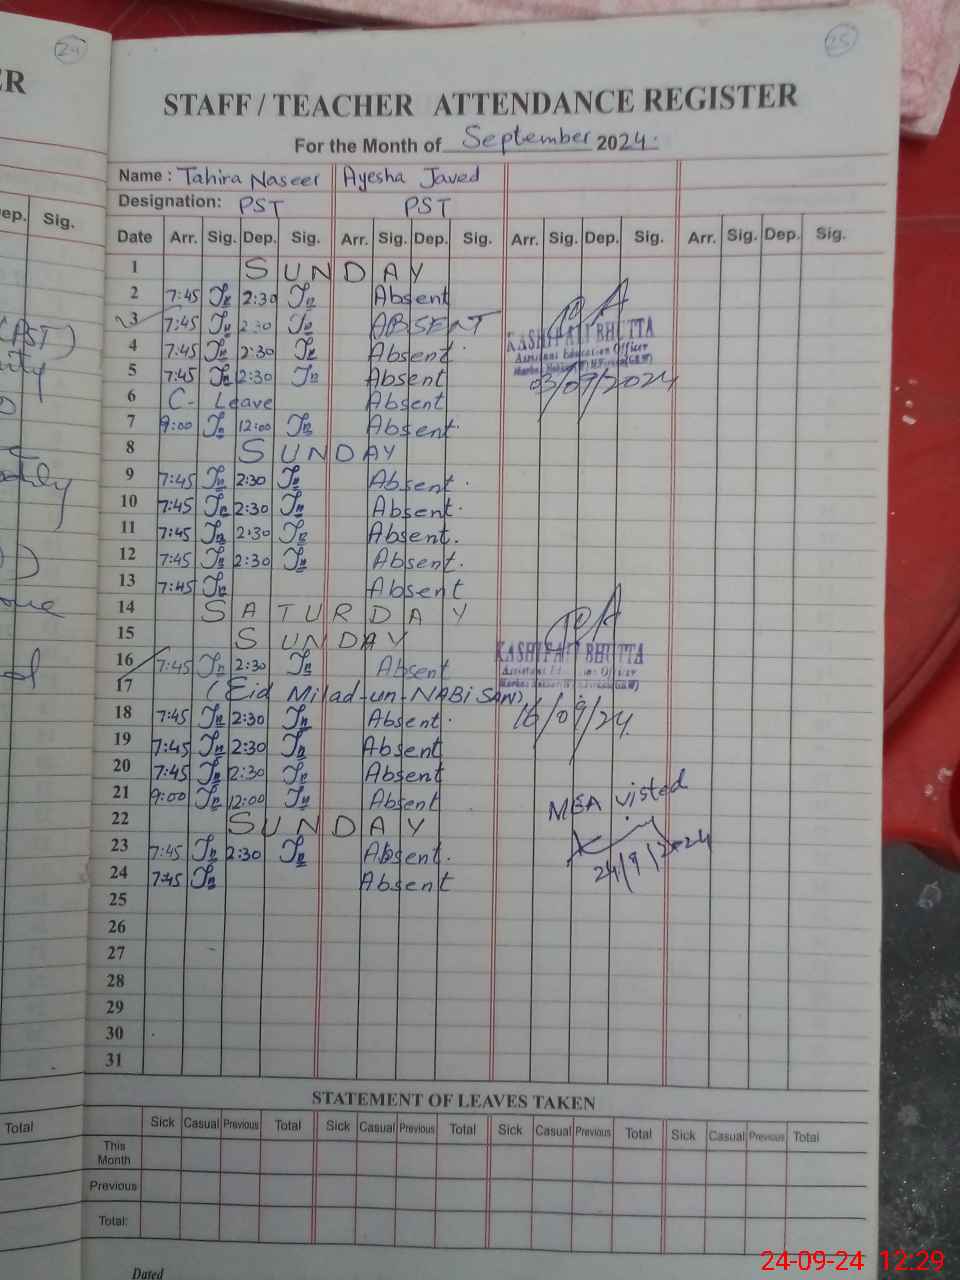 24
25
ER
STAFF / TEACHER ATTENDANCE REGISTER
For the Month of September 2024.
Name : Tahira Naseer Ayesha Javed
Designation: PST PST
Dep. Sig.
Date Arr. Sig. Dep. Sig. Arr. Sig. Dep. Sig. Arr. Sig. Dep. Sig. Arr. Sig. Dep. Sig.
1 SUNDAY
2 7:45 Tn 2:30 Tn Absent
3 7:45 Tn 2:30 Tn ABSENT
KASHIF ALI BHUTTA
4 7:45 Tn 2:30 Tn Absent.
Assistant Education Officer
5 7:45 Tn 2:30 Tn Absent
03/09/2024
6 C- Leave Absent
7 9:00 Tn 12:00 Tn Absent.
8 SUNDAY
9 7:45 Tn 2:30 Tn Absent.
10 7:45 Tn 2:30 Tn Absent.
11 7:45 Tn 2:30 Tn Absent.
12 7:45 Tn 2:30 Tn Absent.
13 7:45 Tn Absent
14 SATURDAY
15 SUNDAY
KASHIF ALI BHUTTA
16 7:45 Tn 2:30 Tn Absent
Assistant Education Officer
17 (Eid Milad-un-NABI SAW)
18 7:45 Tn 2:30 Tn Absent. 16/09/24
19 7:45 Tn 2:30 Tn Absent
20 7:45 Tn 2:30 Tn Absent
21 9:00 Tn 12:00 Tn Absent
MEA visted
22 SUNDAY
23 7:45 Tn 2:30 Tn Absent.
24/9/2024
24 7:45 Tn Absent
25
26
27
28
29
30
31
STATEMENT OF LEAVES TAKEN
Sick Casual Previous Total Sick Casual Previous Total Sick Casual Previous Total Sick Casual Previous Total
Total
This Month
Previous
Total:
Dated
24-09-24 12:29